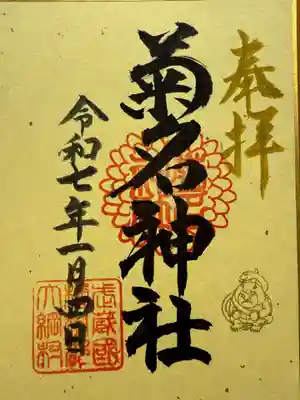 奉拝
菊名神社
令和七年一月四日
武蔵國
大綱村